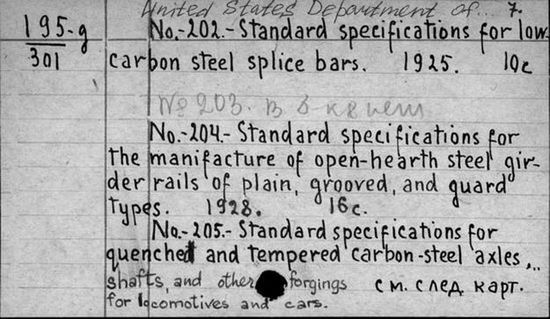 United States Department of... 7.
195-g
301
No.-202.- Standard specifications for low-
carbon steel splice bars. 1925. 10c
№ 203. в 3 экземп
No.-204.- Standard specifications for
the manifacture of open-hearth steel gir-
der rails of plain, grooved, and guard
types. 1928. 16c.
No.-205.- Standard specifications for
quenched and tempered carbon-steel axles,..
shafts, and other forgings см. след карт.
for locomotives and cars.